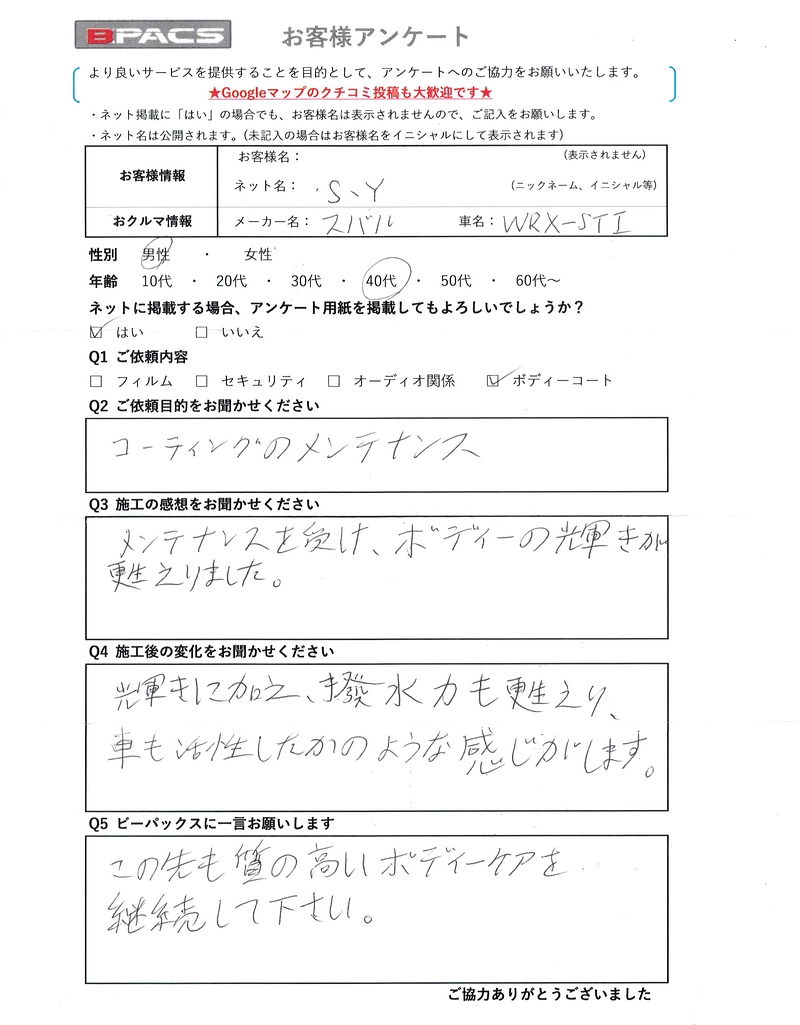 BPACS お客様アンケート
より良いサービスを提供することを目的として、アンケートへのご協力をお願いいたします。
★Googleマップのクチコミ投稿も大歓迎です★
・ネット掲載に「はい」の場合でも、お客様名は表示されませんので、ご記入をお願いします。
・ネット名は公開されます。(未記入の場合はお客様名をイニシャルにして表示されます)
お客様情報 お客様名： (表示されません)
ネット名： S、Y (ニックネーム、イニシャル等)
おクルマ情報 メーカー名： スバル 車名： WRX-STI
性別 男性 ・ 女性
年齢 10代 ・ 20代 ・ 30代 ・ 40代 ・ 50代 ・ 60代～
ネットに掲載する場合、アンケート用紙を掲載してもよろしいでしょうか？
☑ はい ☐ いいえ
Q1 ご依頼内容
☐ フィルム ☐ セキュリティ ☐ オーディオ関係 ☑ ボディーコート
Q2 ご依頼目的をお聞かせください
コーティングのメンテナンス
Q3 施工の感想をお聞かせください
メンテナンスを受け、ボディーの輝きが
甦えりました。
Q4 施工後の変化をお聞かせください
輝きに加え、撥水力も甦えり、
車も活性したかのような感じがします。
Q5 ビーパックスに一言お願いします
この先も質の高いボディーケアを
継続して下さい。
ご協力ありがとうございました